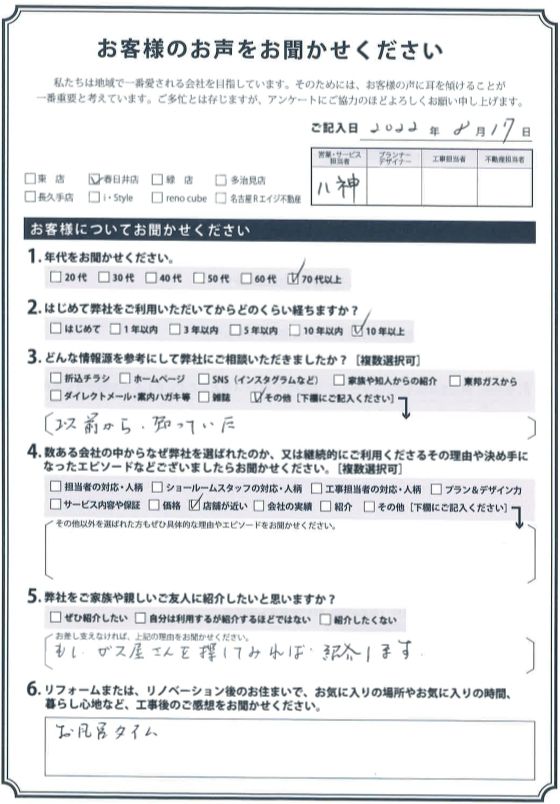 お客様のお声をお聞かせください
私たちは地域で一番愛される会社を目指しています。そのためには、お客様の声に耳を傾けることが
一番重要と考えています。ご多忙とは存じますが、アンケートにご協力のほどよろしくお願い申し上げます。
ご記入日 2022 年 8 月 17 日
営業・サービス担当者 プランナーデザイナー 工事担当者 不動産担当者
八神
□東 店 ☑春日井店 □緑 店 □多治見店
□長久手店 □i・Style □reno cube □名古屋Rエイジ不動産
お客様についてお聞かせください
1.年代をお聞かせください。
□20代 □30代 □40代 □50代 □60代 ☑70代以上
2.はじめて弊社をご利用いただいてからどのくらい経ちますか?
□はじめて □1年以内 □3年以内 □5年以内 □10年以内 ☑10年以上
3.どんな情報源を参考にして弊社にご相談いただきましたか?［複数選択可］
□折込チラシ □ホームページ □SNS（インスタグラムなど） □家族や知人からの紹介 □東邦ガスから
□ダイレクトメール・案内ハガキ等 □雑誌 ☑その他［下欄にご記入ください］
以前から、知っていた
4.数ある会社の中からなぜ弊社を選ばれたのか、又は継続的にご利用くださるその理由や決め手に
なったエピソードなどございましたらお聞かせください。［複数選択可］
□担当者の対応・人柄 □ショールームスタッフの対応・人柄 □工事担当者の対応・人柄 □プラン&デザイン力
□サービス内容や保証 □価格 ☑店舗が近い □会社の実績 □紹介 □その他［下欄にご記入ください］
その他以外を選ばれた方もぜひ具体的な理由やエピソードをお聞かせください。
5.弊社をご家族や親しいご友人に紹介したいと思いますか?
□ぜひ紹介したい □自分は利用するが紹介するほどではない □紹介したくない
お差し支えなければ、上記の理由をお聞かせください。
もし ガス屋さんを探してみれば 紹介します。
6.リフォームまたは、リノベーション後のお住まいで、お気に入りの場所やお気に入りの時間、
暮らし心地など、工事後のご感想をお聞かせください。
お風呂タイム